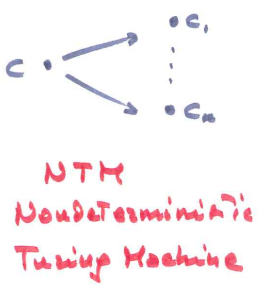 C
C₁
Cₙ
NTM
Nondeterministic
Turing Machine